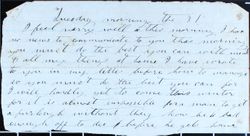 Tuesday morning the 21
I feel very well this morning I have
no news to communicate to you this morning
you must do the best you can with
all my things at home I have wrote
to you in my letter before how to manage
you must do the best you can for
I will hardly get to come
for it is almost impossible for a man to get
a furlough without they
to die before he gets